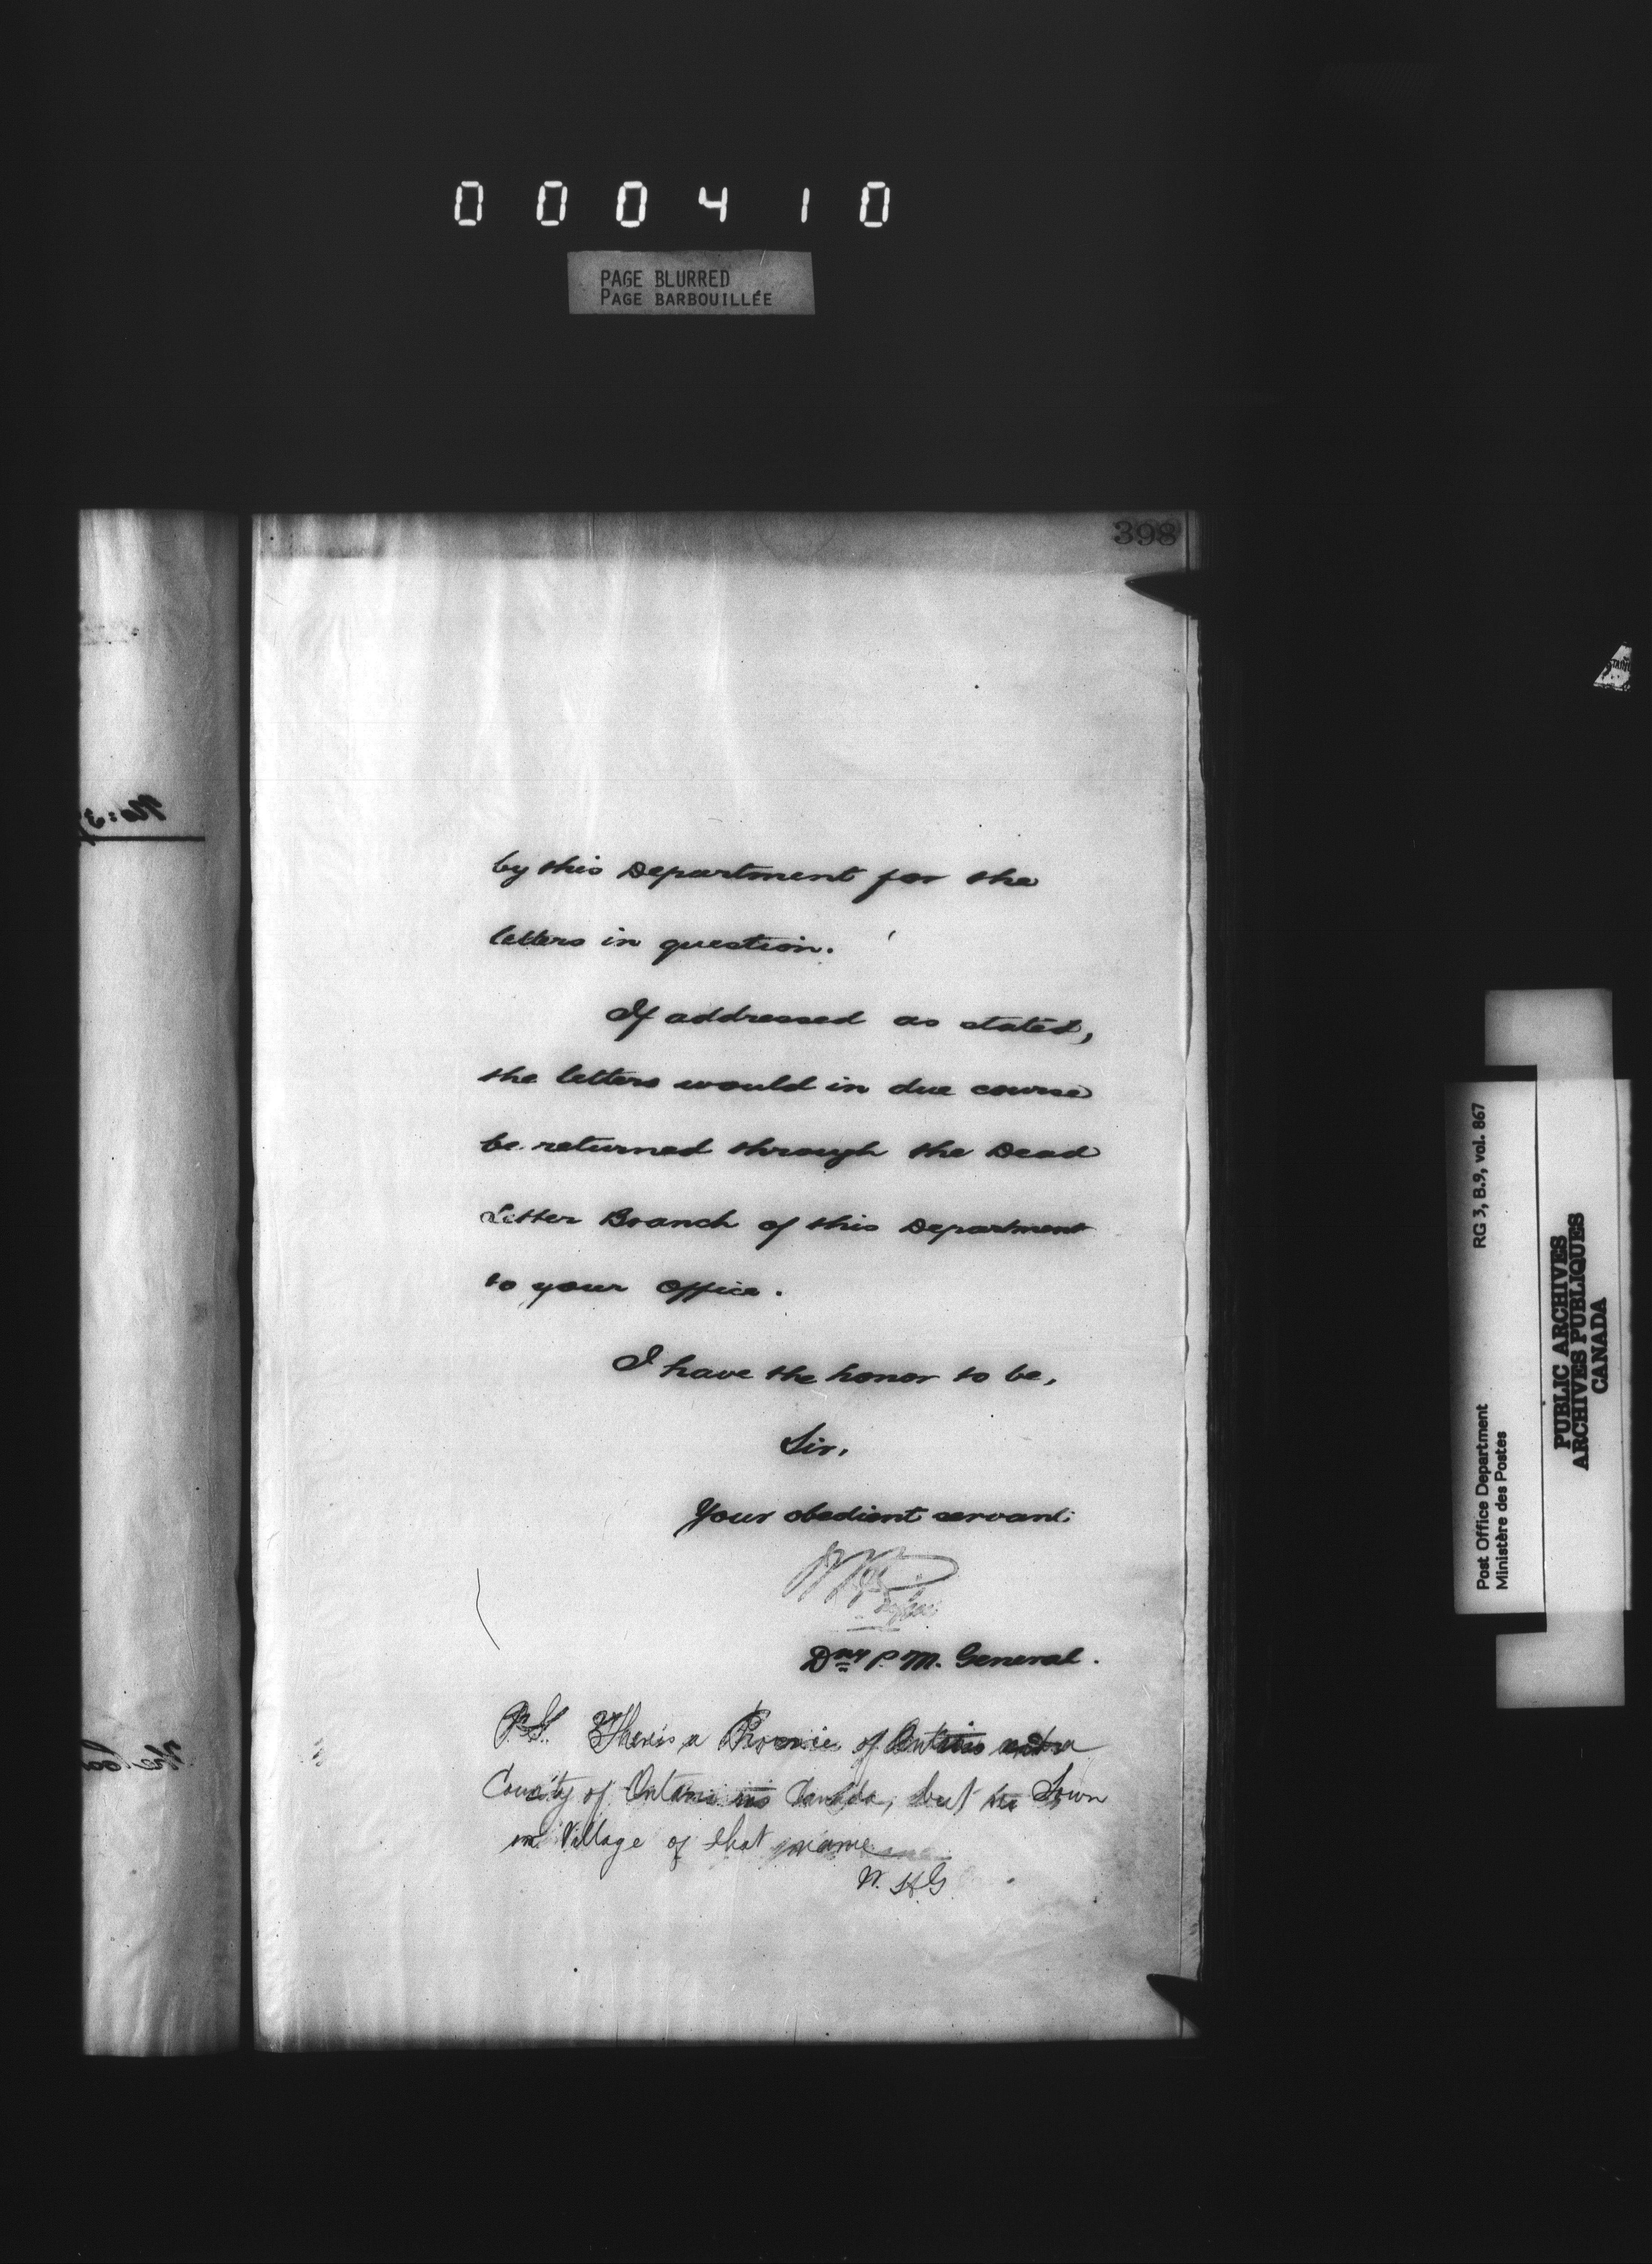 000410
PAGE BLURRED
PAGE BARBOUILLÉE
398
No: 3
by this Department for the
letters in question.
If addressed as stated,
the letters would in due course
be returned through the Dead
Letter Branch of this Department
to your Office.
I have the honor to be,
Sir,
Your obedient servant.
Dny P. M. General.
P.S. There is a Province of Ontario and a
County of Ontario in Canada, but no Town
or Village of that name
W. H. G
Post Office Department RG 3, B.9, vol. 867
Ministère des Postes
PUBLIC ARCHIVES
ARCHIVES PUBLIQUES
CANADA